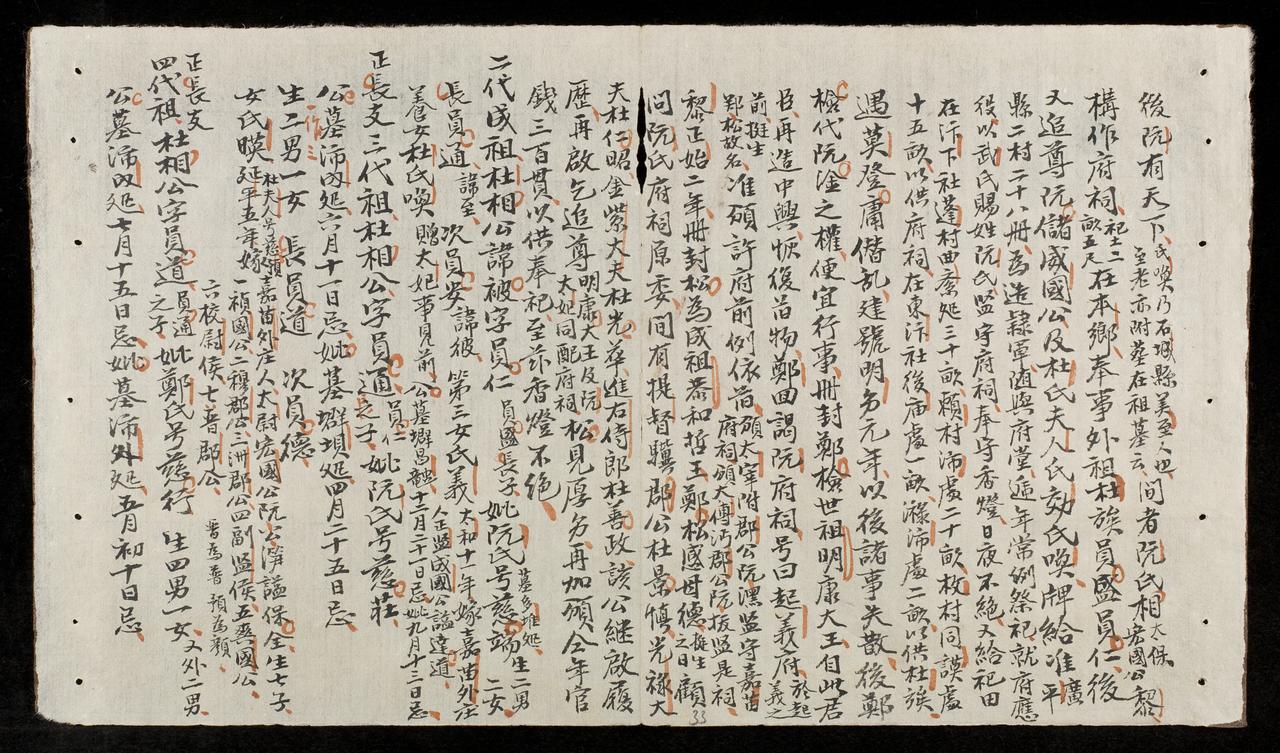 後阮有天下氏喚乃石城縣美至人也至老亦附葬在祖墓云間者阮氏相太保宏國公黎
構作府祠祀土二畝五尺在本鄉奉事外祖杜族員盛員仁後
又追尊阮儲威國公及杜氏夫人氏効氏喚牌給准平廣
縣二村二十八冊為造隸軍随與府堂遞年常例祭祀就府應
役以武氏賜姓阮氏監守府祠奉守香燈日夜不絕又給祀田
在汴下社蓬村曲處三十畝賴村沛處二十畝枚村同謨處
十五畝以供府祠在東汴社後庙處一畝滁沛處二畝以供杜族
遇莫登庸僭乱建號明务元年以後諸事失散後鄭
檢代阮淦之權便宜行事冊封鄭檢世祖明康大王自此君
臣再造中興恢復旧物鄭回謁阮府祠号曰起義府於起義之
前挺生鄭松故名准頒許府前例依前頒太宰附郡公阮漂監守嘉苗府祠頒太傅沔郡公阮拔監是祠
黎正始二年冊封松為成祖恭和哲王鄭松國母德挺生之日顧
問阮氏府祠原委間有提督驥郡公杜景慎光祿大
夫杜仁昭金紫大夫杜光華進右侍郎杜善政該公継啟履
歷再啟乞追尊明康大王及阮大妃同配府祠松見厚务再加頒仝年官
錢三百貫以供奉祀至茲香燈不絕
二代成祖杜相公諱被字員仁員盛長子妣阮氏号慈端墓多堆処生二男二女
長員通諱至次員安諱彼第三女氏義太和十一年嫁嘉苗外庄人正監成國公諡達道
養女杜氏喚贈大妃事見前公墓壢昌融十二月二十二日忌妣九月十三日忌
正長支三代祖杜相公字員通員仁之子妣阮氏号慈莊
公墓沛內処六月十一日忌妣墓壢垻処四月二十五日忌
生二男一女長員道次員德
女氏暎杜夫人号慈順延平五年嫁嘉苗外庄人太尉宏國公阮公濟諡保全生七子
一禎國公二穆郡公三洲郡公四副監侯五惠國公
六校尉侯七普郡公
正長支
四代祖杜相公字員道員通之子妣鄭氏号慈行生四男一女又外二男
公墓沛內処七月十五日忌妣墓沛外処五月初十日忌
33